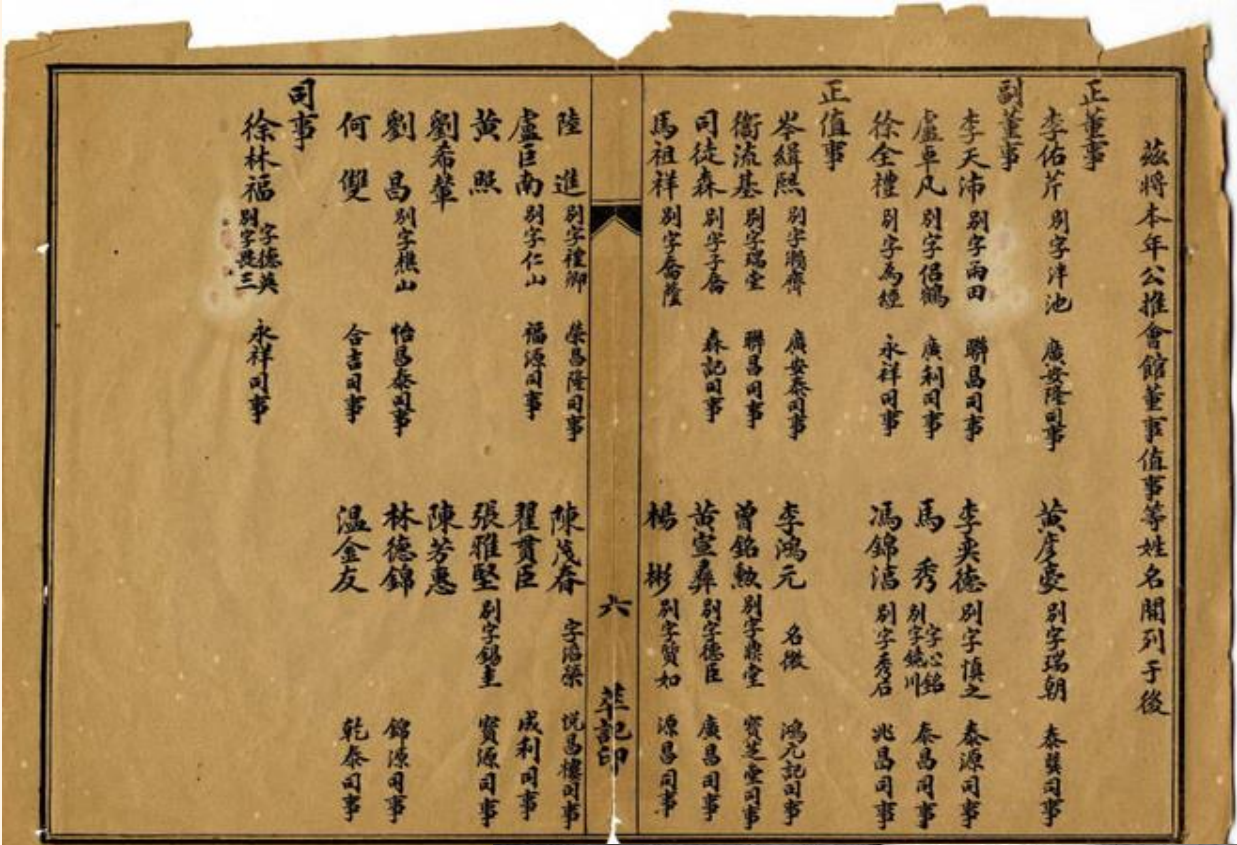 茲將本年公推會館董事值事等姓名開列于後
正董事
李佑芹 別字泮池 廣安隆司事 黃彦臺 別字瑞朝 泰巽司事
副董事
李天沛 別字雨田 聯昌司事 李奕德 別字慎之 泰源司事
盧卓凡 別字侶鶴 廣利司事 馬秀 字公銘 別字鏡川 泰昌司事
徐全禮 別字為經 永祥司事 馮錦濤 別字秀石 兆昌司事
正值事
岑緝熙 別字瀚齋 廣安泰司事 李鴻元 名徵 鴻元記司事
衞流基 別字瑞堂 聯昌司事 曾銘勲 別字鼎堂 寶芝堂司事
司徒森 別字子喬 森記司事 黃宣彝 別字德臣 廣昌司事
馬祖祥 別字喬蔭 楊彬 別字質如 源昌司事
六 華記印
陸進 別字禮卿 榮昌隆司事 陳茂春 字滔榮 悅昌樓司事
盧巨南 別字仁山 福源司事 翟貫臣 成利司事
黃照 張雅堅 別字錫圭 寶源司事
劉希輦 陳芳惠
劉昌 別字樵山 怡昌泰司事 林德錦 錦源司事
何雙 合吉司事 温金友 乾泰司事
司事
徐林福 字德英 別字畏三 永祥司事